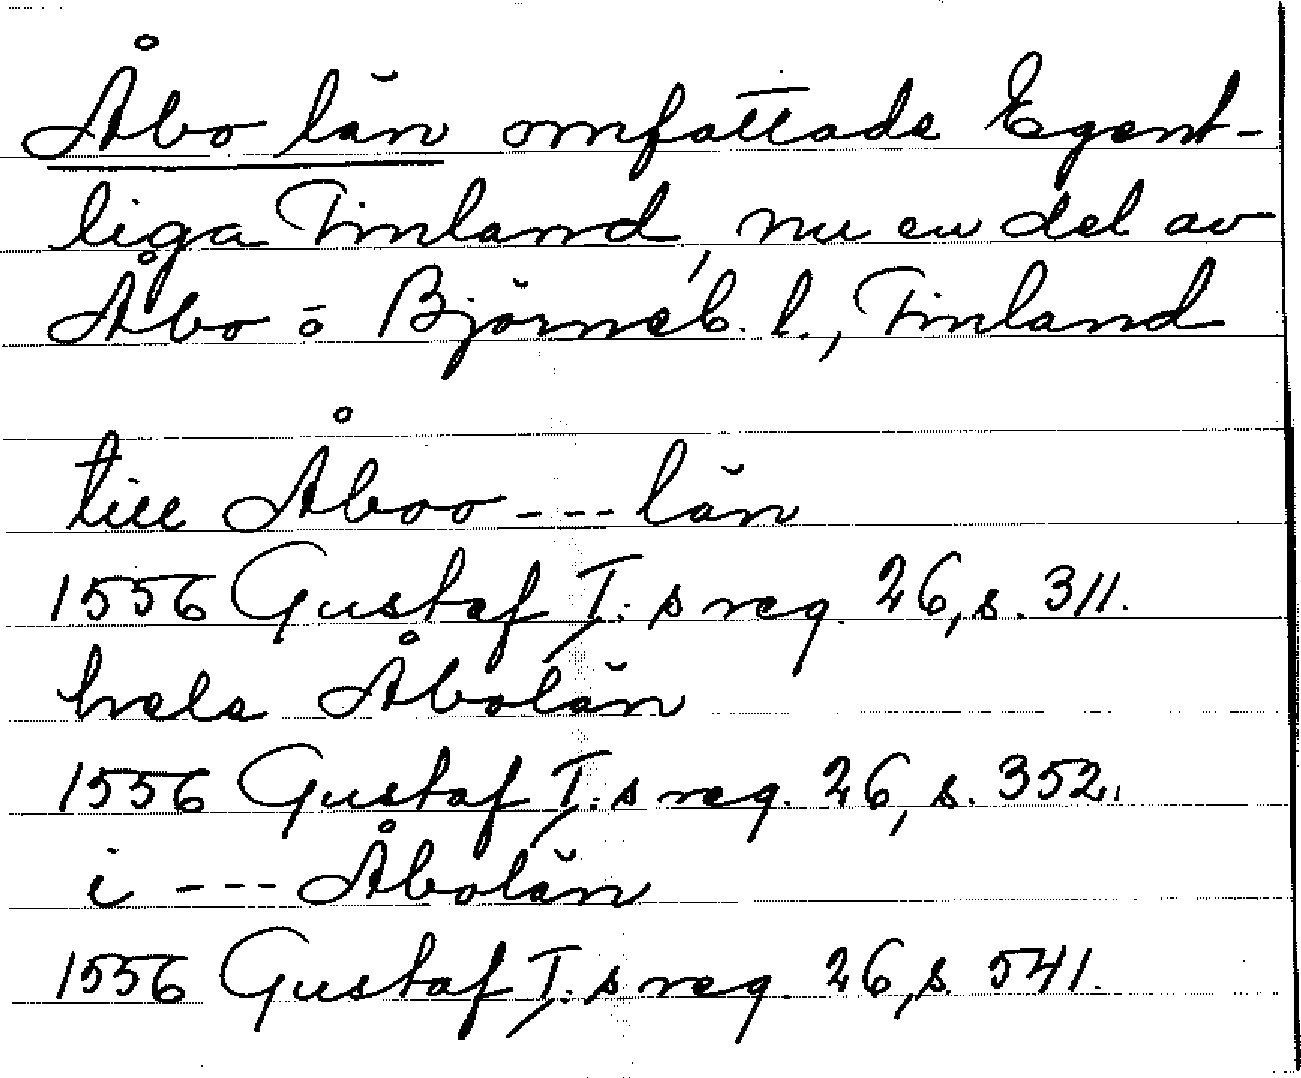 Åbo län omfattade Egent-
liga Finland, nu en del av
Åbo o Björneb. l., Finland
till Åboo --- län
1556 Gustaf I:s reg. 26, s. 311.
hela Åbolän
1556 Gustaf I:s reg. 26, s. 352.
i --- Åbolän
1556 Gustaf I:s reg. 26, s. 541.